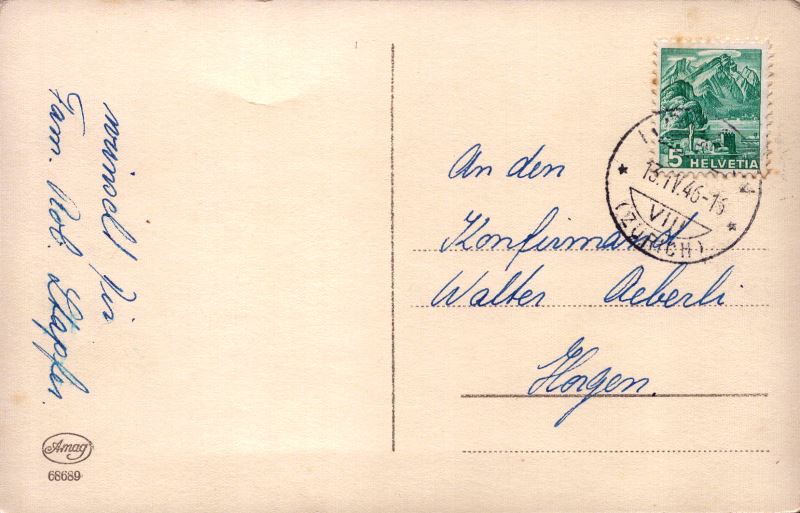 wünscht Dir
Fam. Rob. Stapfer.
Amag
68689
5 HELVETIA
13.IV.46-16
VIII
(ZÜRICH)
An den
Konfirmand
Walter Aeberli
Horgen.